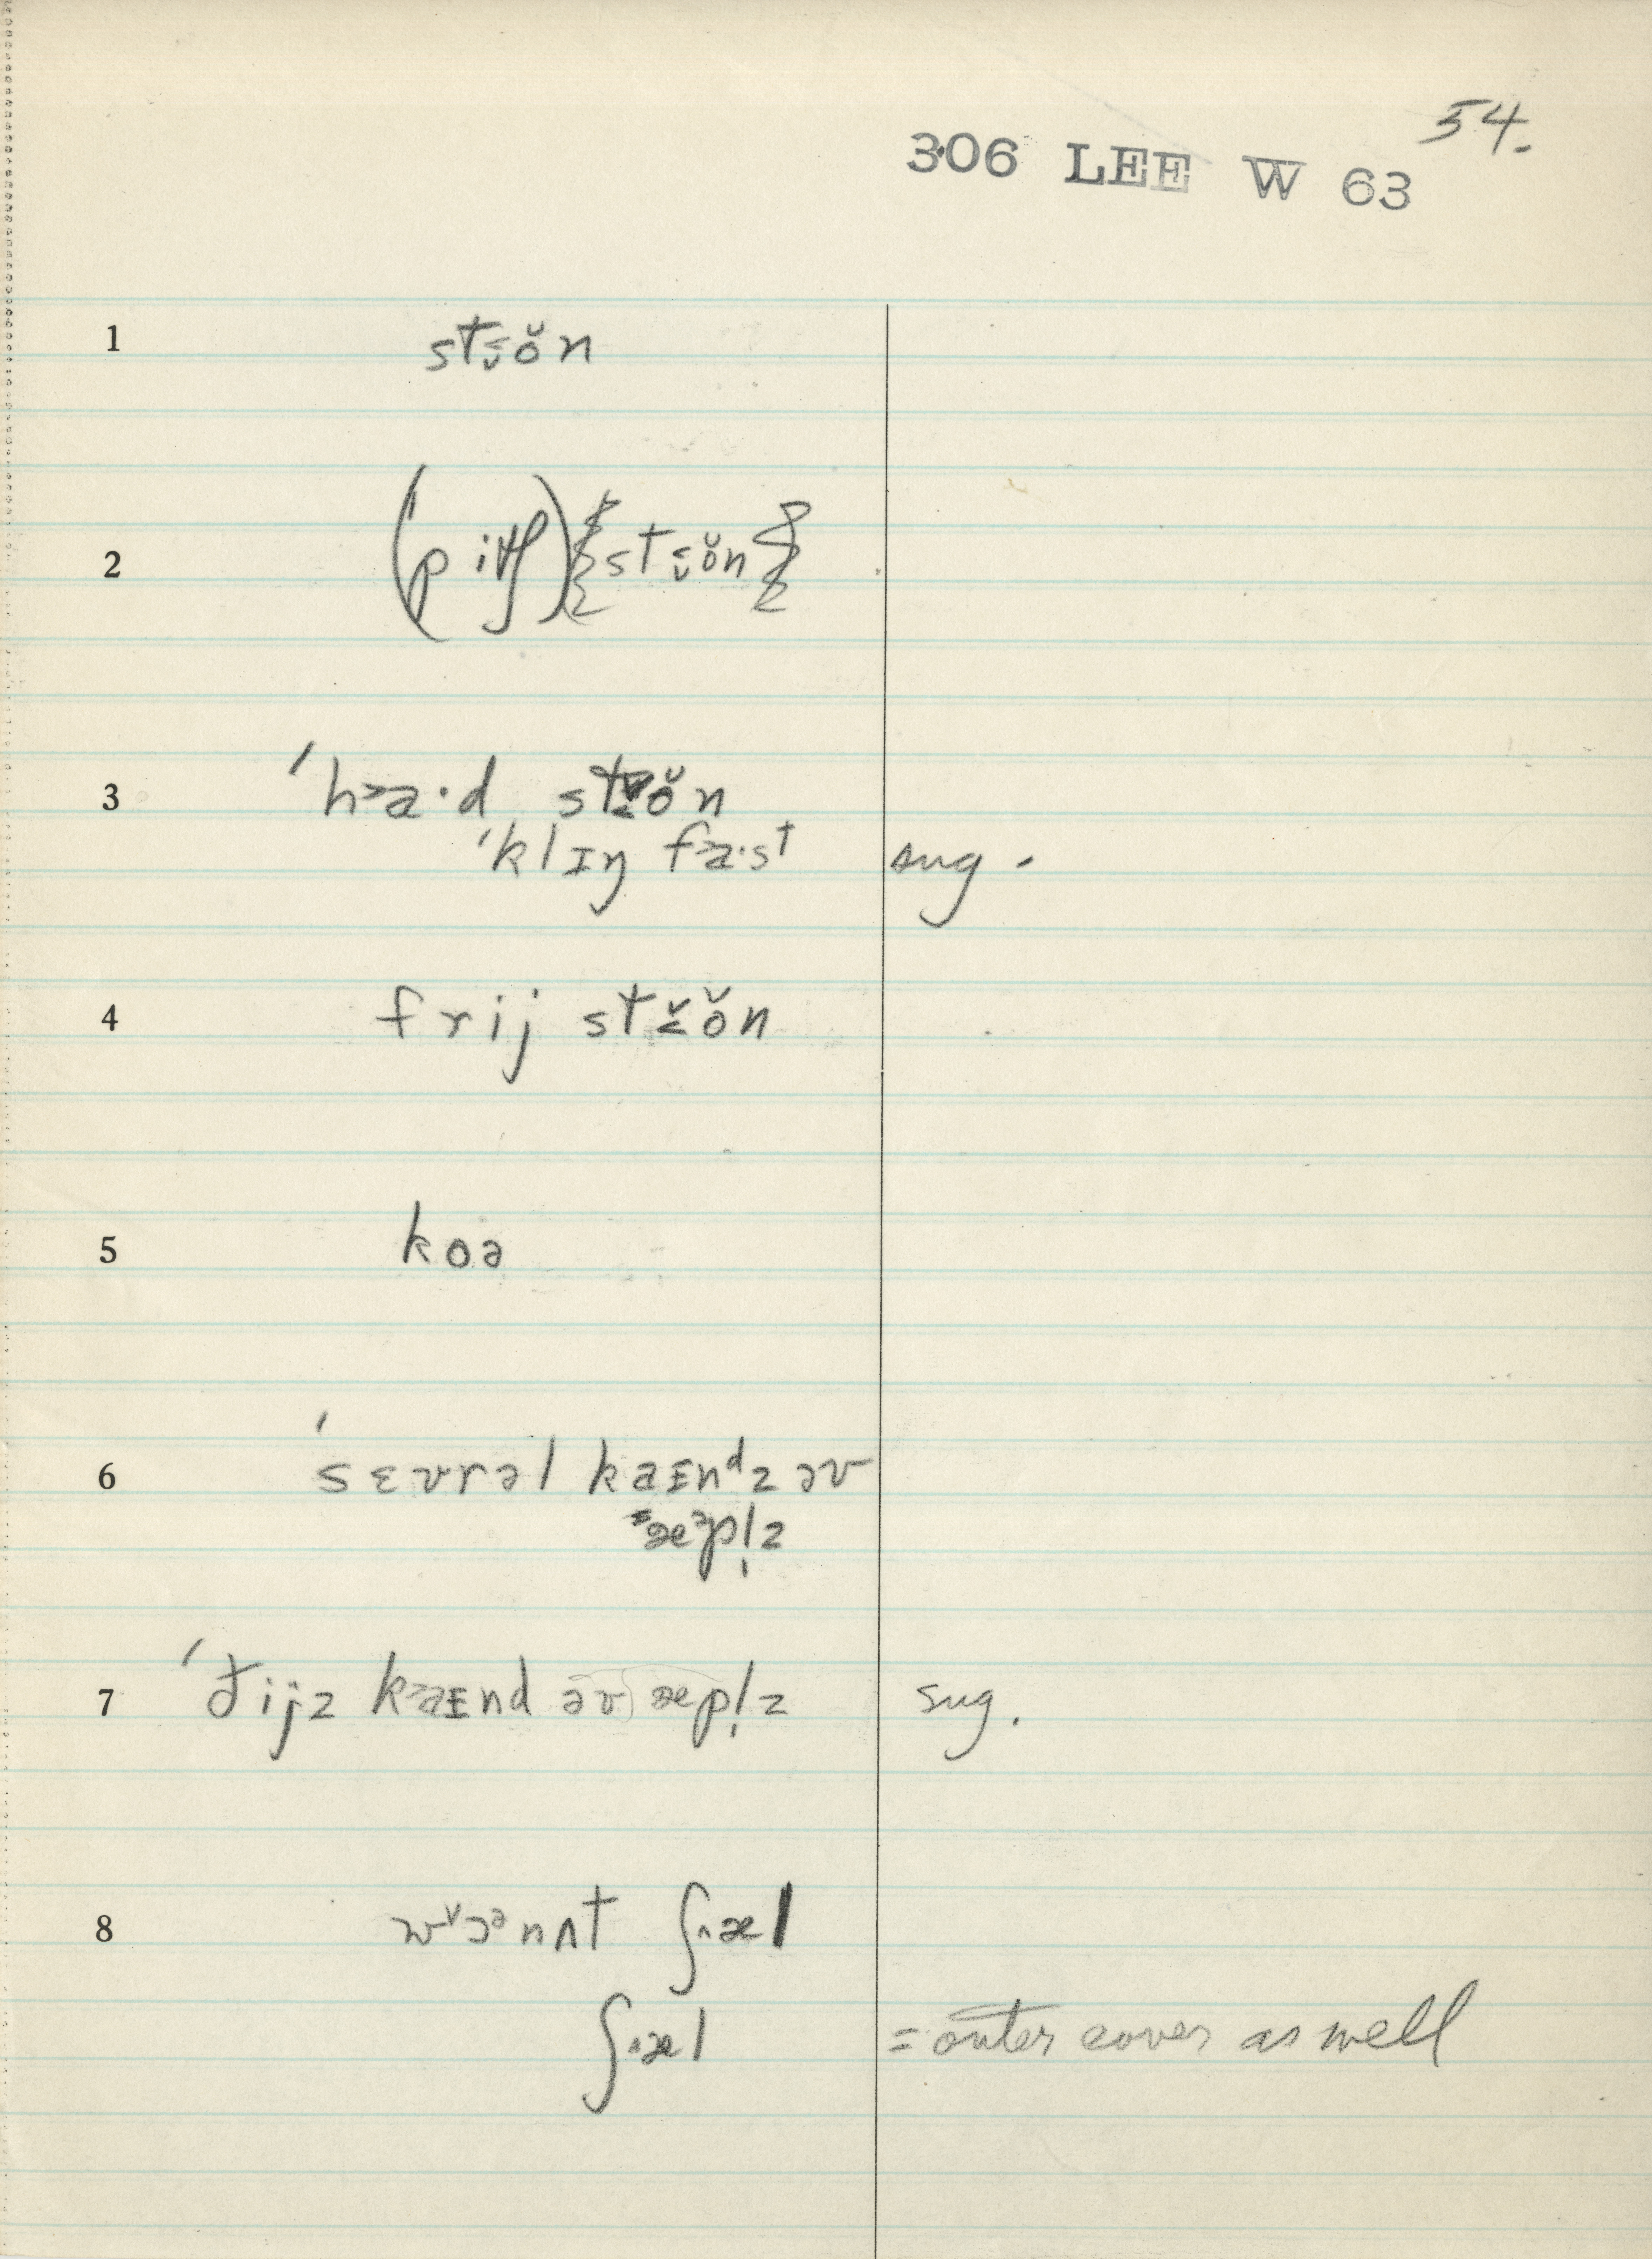 54.
306 LEE W 63
1 stɞ̆n
2 (pitʃ) {stɞ̆n}
3 ˈha·d stɞ̆n
ˈklɪŋ fa·st sug.
4 frij stɞ̆n
5 koə
6 ˈsɛvrəl kaɪnᵈz əv
æᵊpl̩z
7 ˈðijz kaɪnd əv æpl̩z sug.
8 wɔᵊnʌt ʃæl
ʃæl = outer cover as well